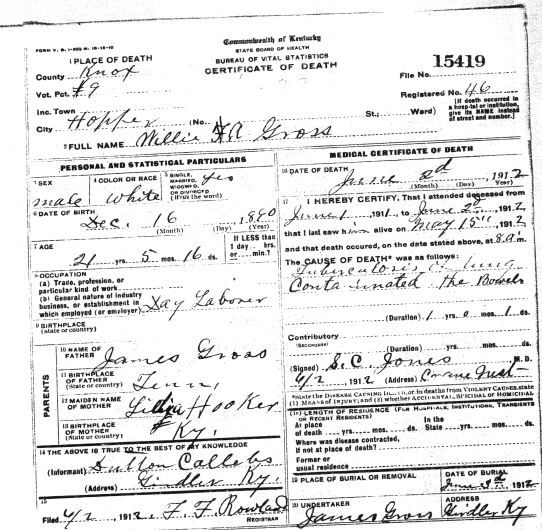 FORM V. S. 1-200 M. 10-12-10
Commonwealth of Kentucky
STATE BOARD OF HEALTH
BUREAU OF VITAL STATISTICS
CERTIFICATE OF DEATH
1 PLACE OF DEATH
County Knox
Vot. Pct. #9
Inc. Town
City Hopper (No. St.; Ward)
File No. 15419
Registered No. 46
[If death occurred in a hospital or institution, give its NAME instead of street and number.]
2 FULL NAME Willie A Gross
PERSONAL AND STATISTICAL PARTICULARS
3 SEX male
4 COLOR OR RACE White
5 SINGLE, MARRIED, WIDOWED, OR DIVORCED (Write the word) yes
6 DATE OF BIRTH
Dec. 16 1890
(Month) (Day) (Year)
7 AGE
21 yrs. 5 mos. 16 ds.
If LESS than 1 day, hrs. or min.?
8 OCCUPATION
(a) Trade, profession, or particular kind of work
(b) General nature of industry business, or establishment in which employed (or employer) Day Laborer
9 BIRTHPLACE
(State or country)
PARENTS
10 NAME OF FATHER James Gross
11 BIRTHPLACE OF FATHER (State or country) Tenn.
12 MAIDEN NAME OF MOTHER Hooker
13 BIRTHPLACE OF MOTHER (State or country) Ky.
14 THE ABOVE IS TRUE TO THE BEST OF MY KNOWLEDGE
(Informant) Sutton Callebs
(Address) Girdler Ky.
15
Filed 6/2 1912 F. F. Rowland
REGISTRAR
MEDICAL CERTIFICATE OF DEATH
16 DATE OF DEATH
June 2d 1912
(Month) (Day) (Year)
17 I HEREBY CERTIFY, That I attended deceased
from June 1 1911 to June 2d 1912
that I last saw him alive on May 15" 1912
and that death occurred, on the date stated above, at 8 a m.
The CAUSE OF DEATH* was as follows:
Tuberculosis of lung
Contaminated the Bowels
(Duration) 1 yrs. 0 mos. 1 ds.
Contributory
(SECONDARY)
(Duration) yrs. mos. ds.
(Signed) S. C. Jones M. D.
6/2 1912 (Address)
*State the DISEASE CAUSING DEATH, or, in deaths from VIOLENT CAUSES, state (1) MEANS OF INJURY; and (2) whether ACCIDENTAL, SUICIDAL or HOMICIDAL
18 LENGTH OF RESIDENCE (FOR HOSPITALS, INSTITUTIONS, TRANSIENTS OR RECENT RESIDENTS)
At place of death yrs. mos. ds. In the State yrs. mos. ds.
Where was disease contracted, if not at place of death?
Former or usual residence
19 PLACE OF BURIAL OR REMOVAL
DATE OF BURIAL
June 3d 1912
20 UNDERTAKER
James Gross
ADDRESS
Girdler Ky